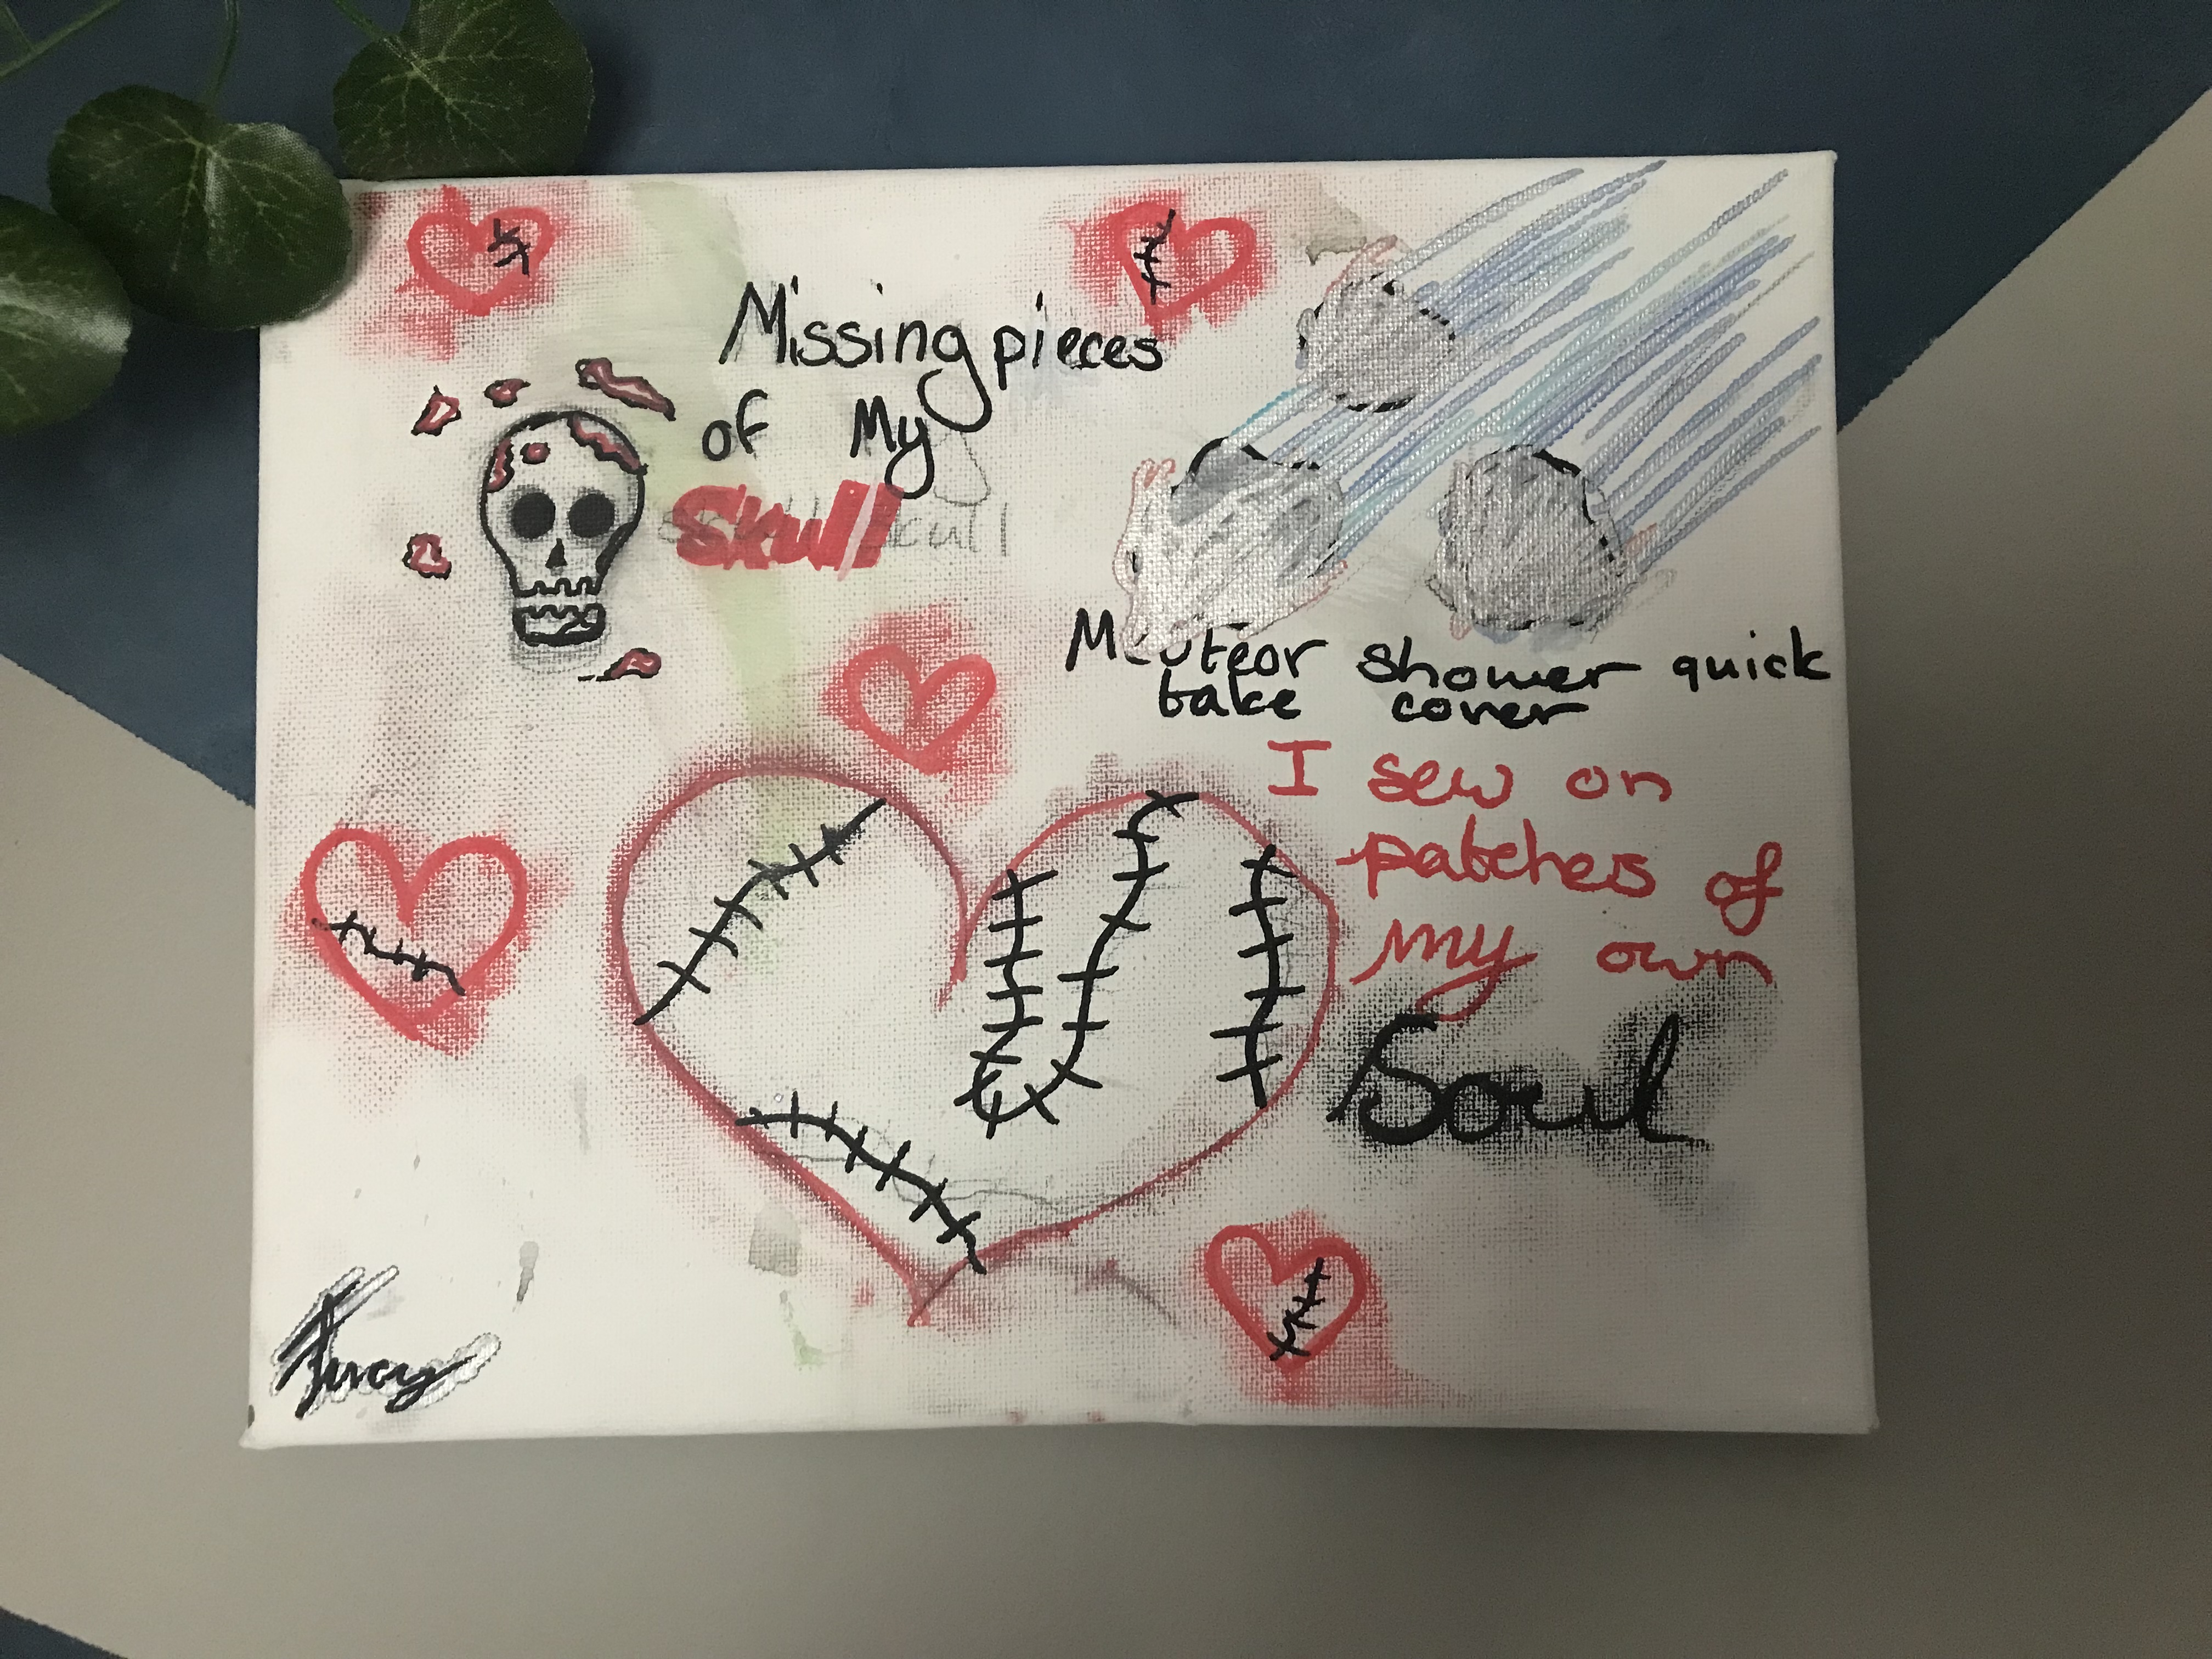 Missing pieces
of My
Skull
Meuteor shower quick
take cover
I sew on
patches of
my own
Soul